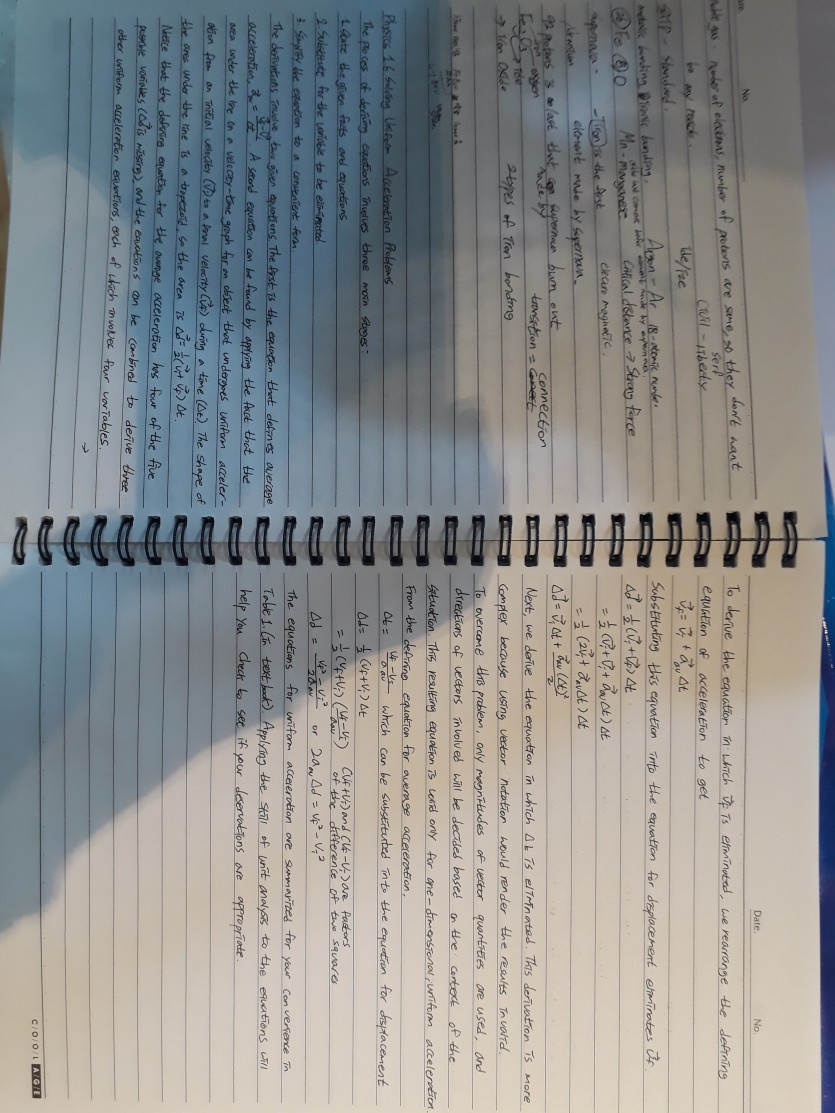 No.
noble gas - number of electrons, number of protons are same, so they don't want
to any react.
Civil - liberty
serf
SATP - Standard.
metallic bonding, ionic bonding.
Argon - Ar 18 - atomic number.
Fe O
Mn - Manganese
Critical distance → Strong force
supernova - Iron is the last
element made by supernova.
electro magnetic.
transition = connection
→ Iron Oxide
2 types of Iron bonding
Physics 1.2 Solving Uniform Acceleration Problems
The process of deriving equations involves three main stages:
1. State the given facts and equations
2. Substitute for the variable to be eliminated
3. Simplify the equation to a convenient form
The derivations involve two given equations. The first is the equation that defines average
acceleration, a⃗av = (v⃗f - v⃗i)/Δt. A second equation can be found by applying the fact that the
area under the line on a velocity-time graph for an object that undergoes uniform acceler-
ation from an initial velocity (v⃗i) to a final velocity (v⃗f) during a time (Δt). The shape of
the area under the line is a trapezoid, so the area is Δd⃗ = ½(v⃗i + v⃗f) Δt.
Notice that the defining equation for the average acceleration has four of the five
possible variables (Δd⃗ is missing) and the equations can be combined to derive three
other uniform acceleration equations, each of which involves four variables.
→
Date.
No.
To derive the equation in which v⃗f is eliminated, we rearrange the defining
equation of acceleration to get
v⃗f = v⃗i + a⃗av Δt
Substituting this equation into the equation for displacement eliminates v⃗f.
Δd⃗ = ½ (v⃗i + v⃗f) Δt
= ½ (v⃗i + v⃗i + a⃗av Δt) Δt
= ½ (2v⃗i + a⃗av Δt) Δt
Δd⃗ = v⃗i Δt + a⃗av (Δt)²/2
Next, we derive the equation in which Δt is eliminated. This derivation is more
complex because using vector notation would render the results invalid.
To overcome this problem, only magnitudes of vector quantities are used, and
directions of vectors involved will be decided based on the context of the
situation This resulting equation is valid only for one-dimensional, uniform acceleration.
From the defining equation for average acceleration,
Δt = (vf - vi)/aav which can be substituted into the equation for displacement
Δd = ½ (vf + vi) Δt
= ½ (vf + vi) ((vf - vi)/aav) (vf + vi) and (vf - vi) are factors
of the difference of two squares
Δd = (vf² - vi²)/2aav or 2aav Δd = vf² - vi²
The equations for uniform acceleration are summarized for your convenience in
Table 1. (in text book) Applying the skill of unit analysis to the equations will
help you check to see if your deservations are appropriate.
COOL AGE